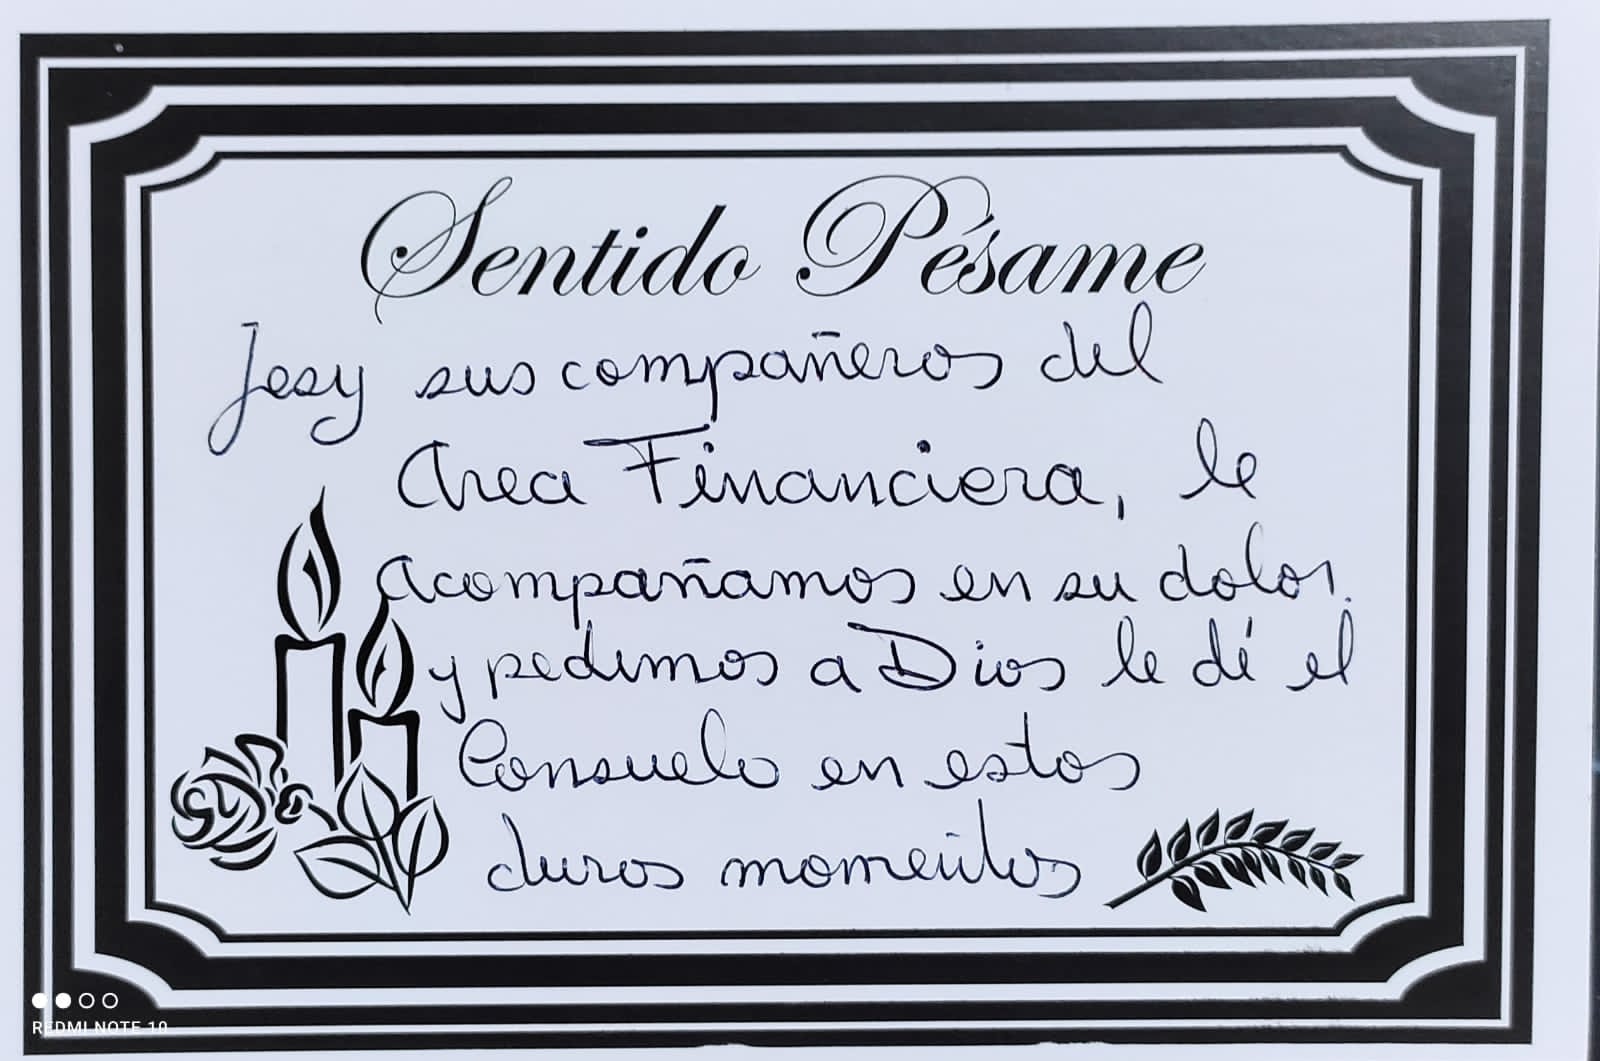 Sentido Pésame
Jesy sus compañeros del
Area Financiera, le
acompañamos en su dolor.
y pedimos a Dios le dé el
Consuelo en estos
duros momentos
REDMI NOTE 10